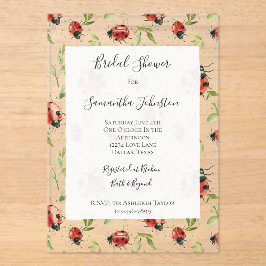 Bridal Shower
For
Samantha Johnston
Saturday June 4th
One O'Clock In the
Afternoon
12234 Love Lane
Dallas, Texas
Registered at
Bath & Beyond
R.S.V.P. to Ashleigh Taylor